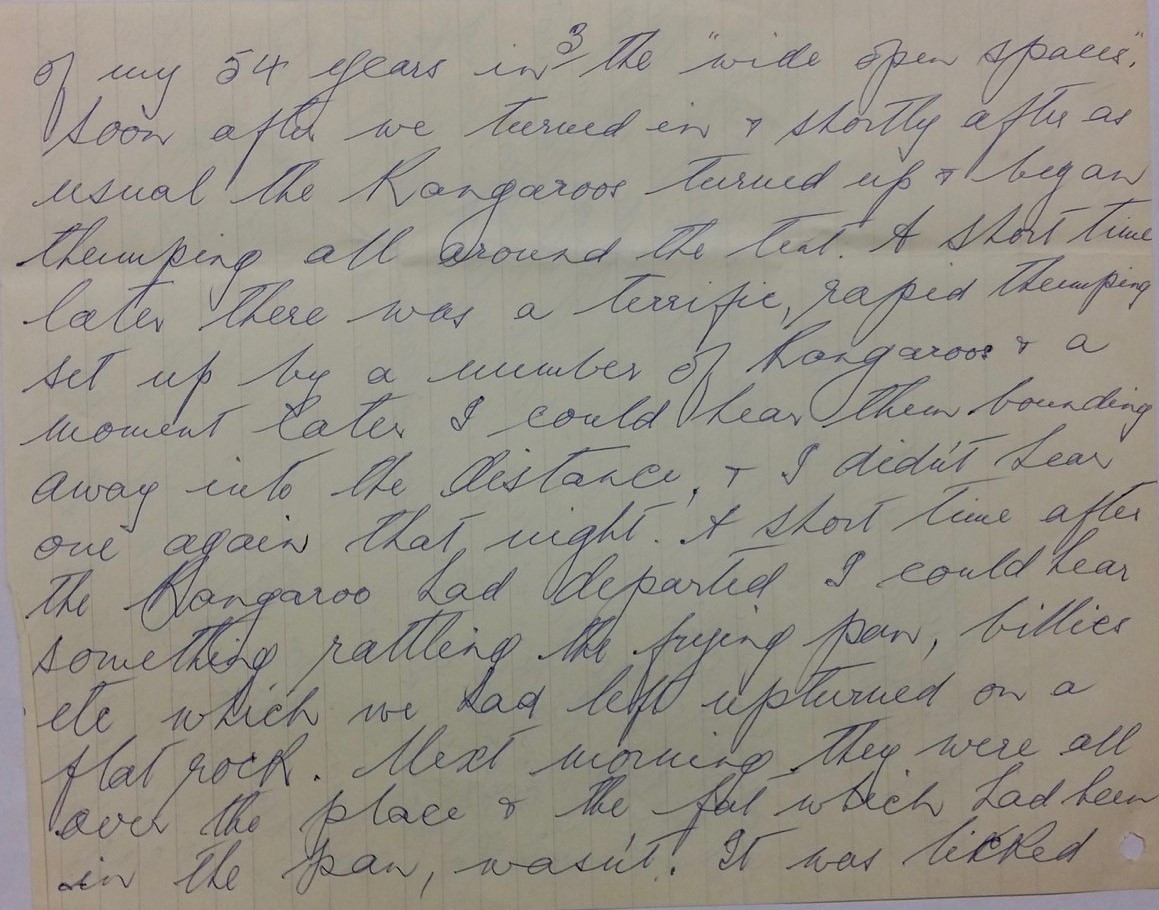 3
of my 54 years in the "wide open spaces".
Soon after we turned in & shortly after as
usual the Kangaroos turned up & began
thumping all around the tent. A short time
later there was a terrific, rapid thumping
set up by a number of Kangaroos & a
moment later I could hear them bounding
away into the distance, & I didn't hear
one again that night. A short time after
the Kangaroo had departed I could hear
something rattling the frying pan, billies
etc which we had left upturned on a
flat rock. Next morning they were all
over the place & the fat which had been
in the pan, wasn't! It was licked